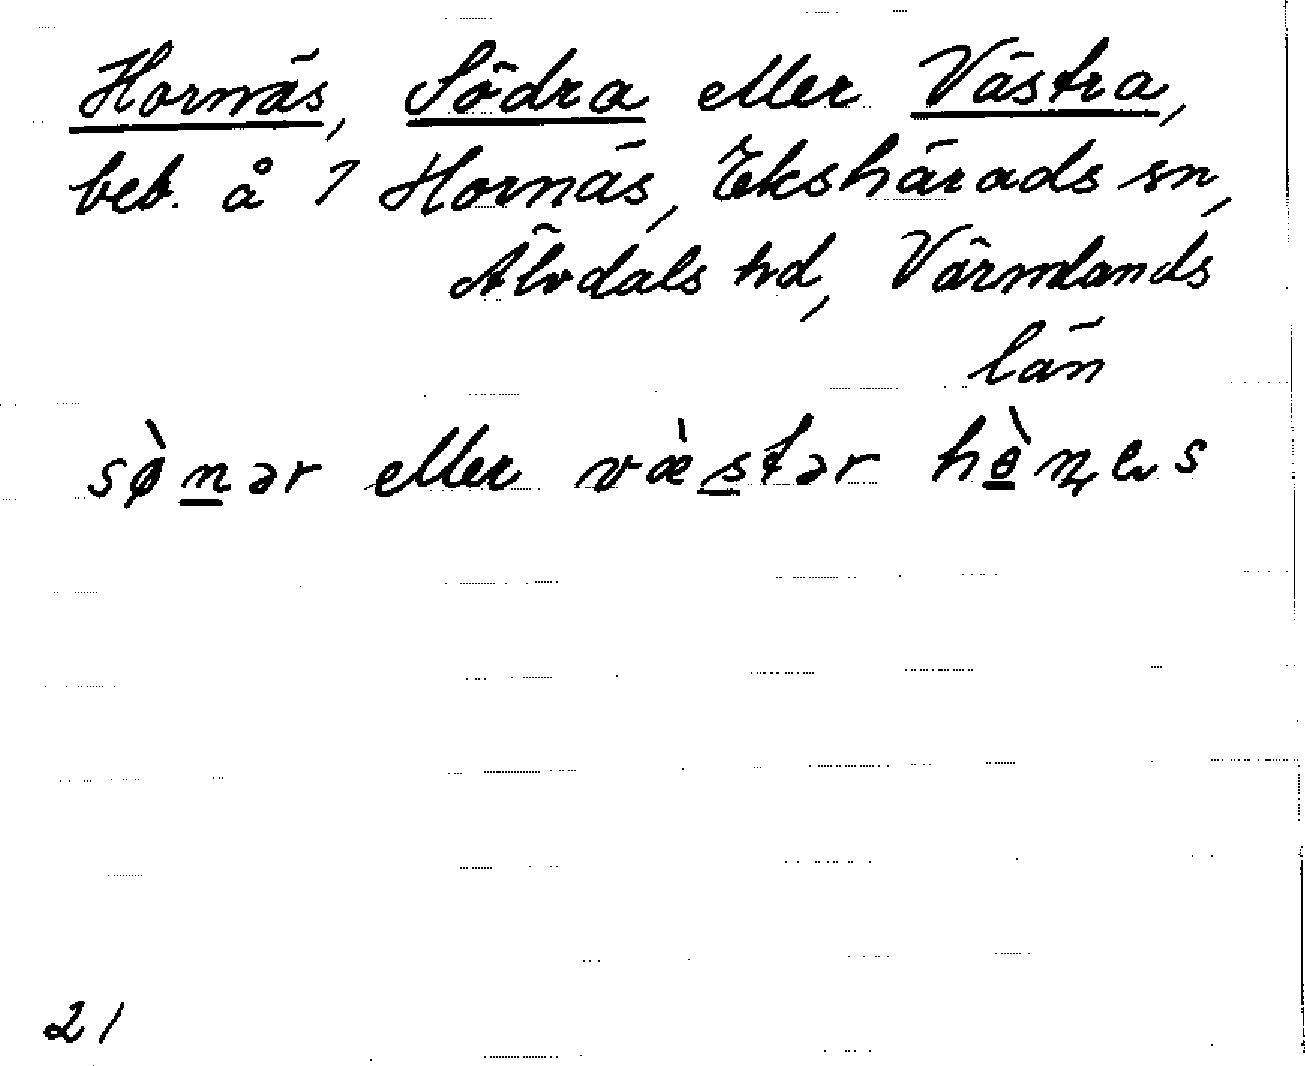 Hornäs, Södra eller Västra,
beb. å 1 Hornäs, Ekshärads sn,
Älvdals hd, Värmlands
län
sø̀nər eller væ̀stər hò̱ɳes
21